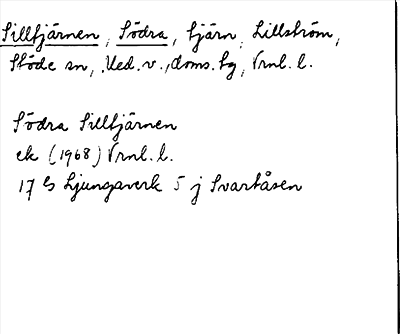 Silltjärnen, Södra, tjärn, Lillström,
Stöde sn, Med. v., doms. hg, Vrnl. l.
Södra Silltjärnen
ek (1968) Vrnl. l.
17 G Ljungaverk 5 j Svartåsen